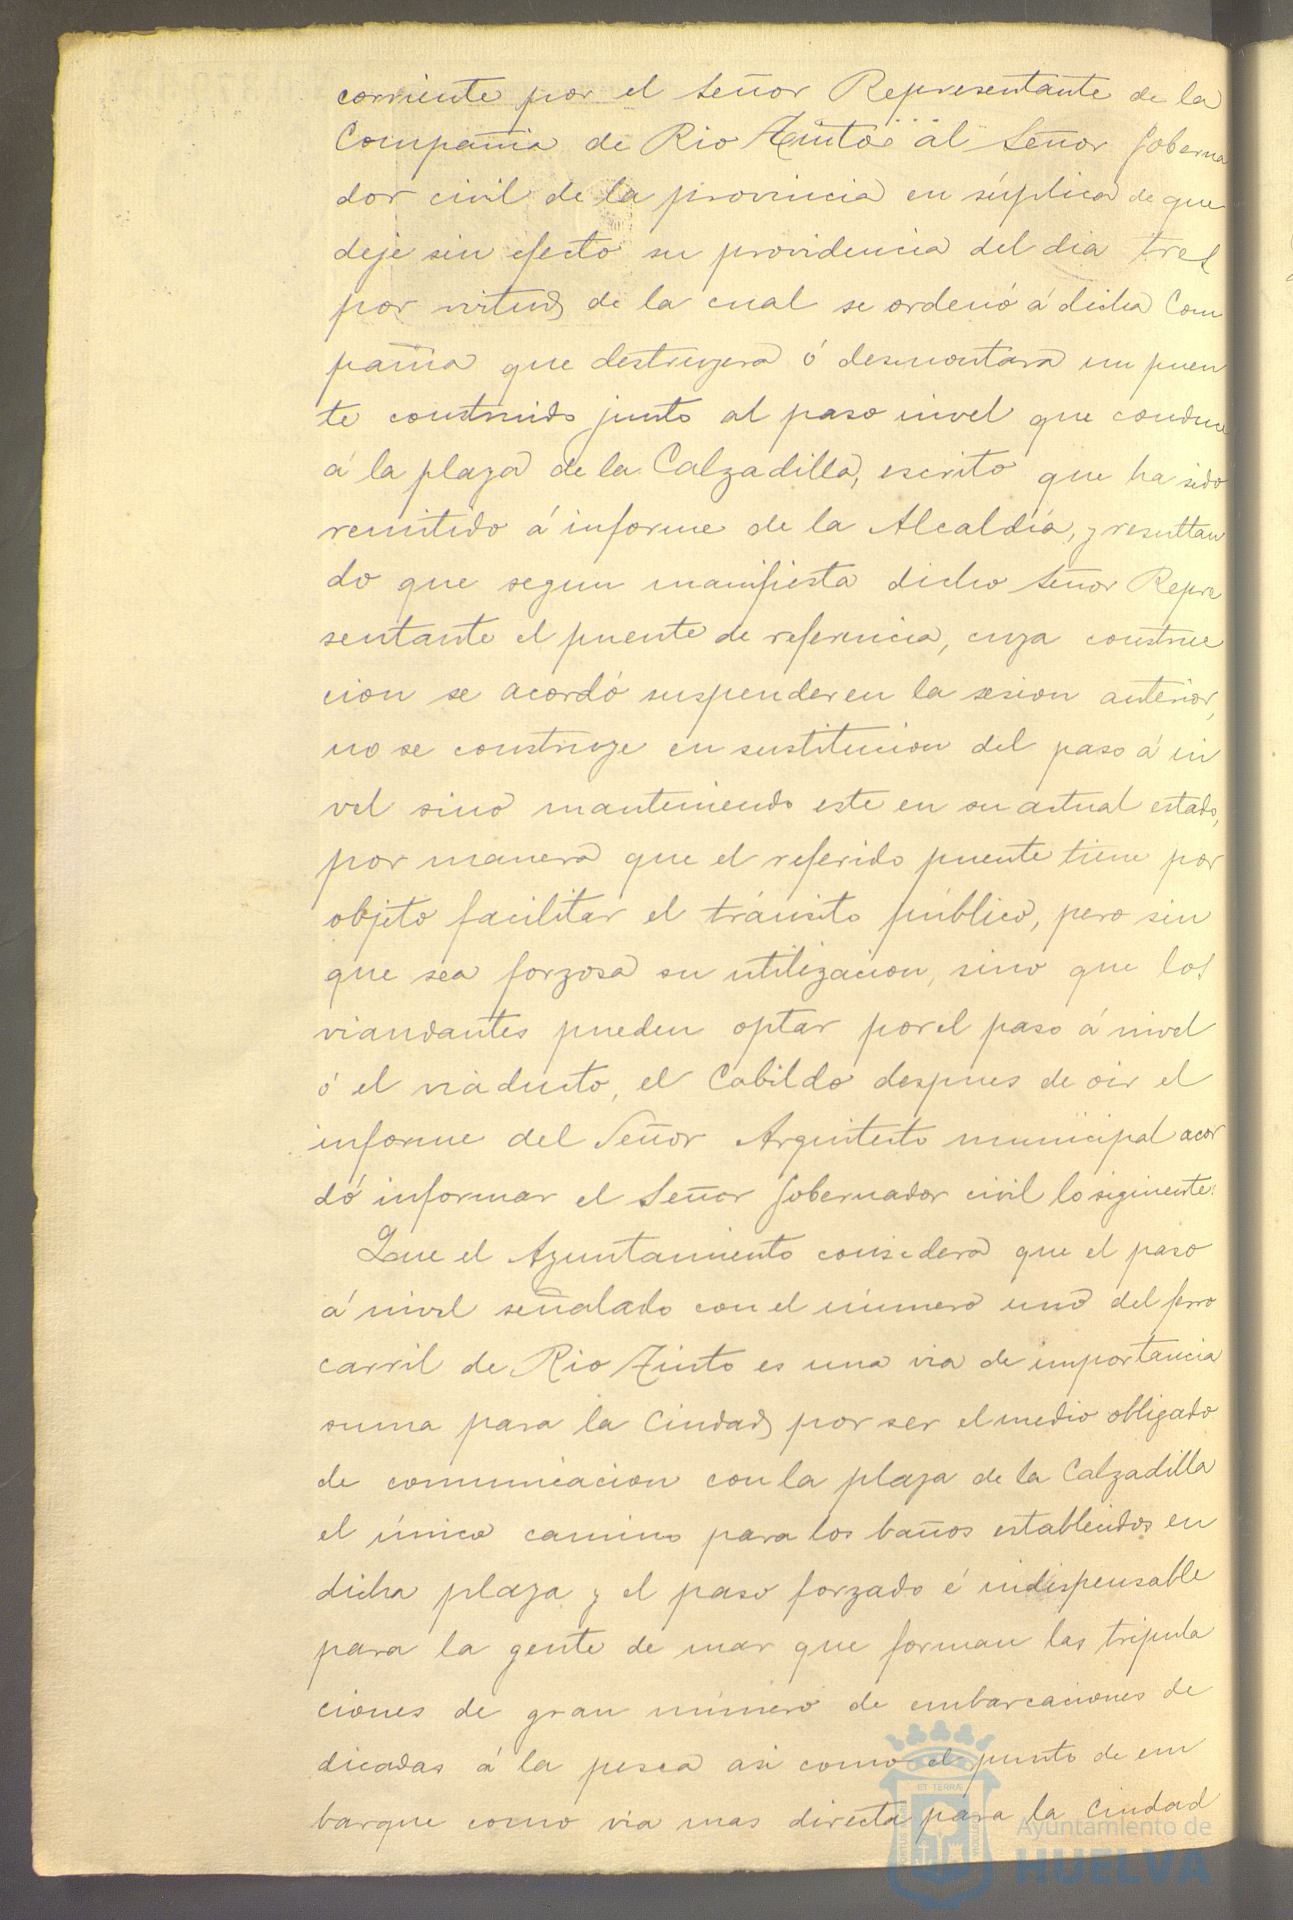 corriente por el Señor Representante de la
Compañia de Rio Tinto al Señor Goberna
dor civil de la provincia en súplica de que
deje sin efecto su providencia del dia tres
por virtud de la cual se ordenó á dicha Com
pañia que destruyera ó desmontara un puen
te construido junto al paso nivel que conduce
á la plaza de la Calzadilla, escrito que ha sido
remitido á informe de la Alcaldía, y resultan
do que segun manifiesta dicho Señor Repre
sentante el puente de referencia, cuya construc
cion se acordó suspender en la sesion anterior,
no se construye en sustitucion del paso á ni
vel sino manteniendo este en su actual estado,
por manera que el referido puente tiene por
objeto facilitar el tránsito público, pero sin
que sea forzosa su utilizacion, sino que los
viandantes pueden optar por el paso á nivel
ó el viaducto, el Cabildo despues de oir el
informe del Señor Arquitecto municipal acor
dó informar el Señor Gobernador civil lo siguiente:
Que el Ayuntamiento considera que el paso
á nivel señalado con el número uno del ferro
carril de Rio Tinto es una via de importancia
suma para la Ciudad por ser el medio obligado
de comunicacion con la plaza de la Calzadilla
el único camino para los baños establecidos en
dicha plaza y el paso forzado é indispensable
para la gente de mar que forman las tripula
ciones de gran número de embarcaciones de
dicadas á la pesca asi como el punto de em
barque como via mas directa para la Ciudad
Ayuntamiento de
HUELVA